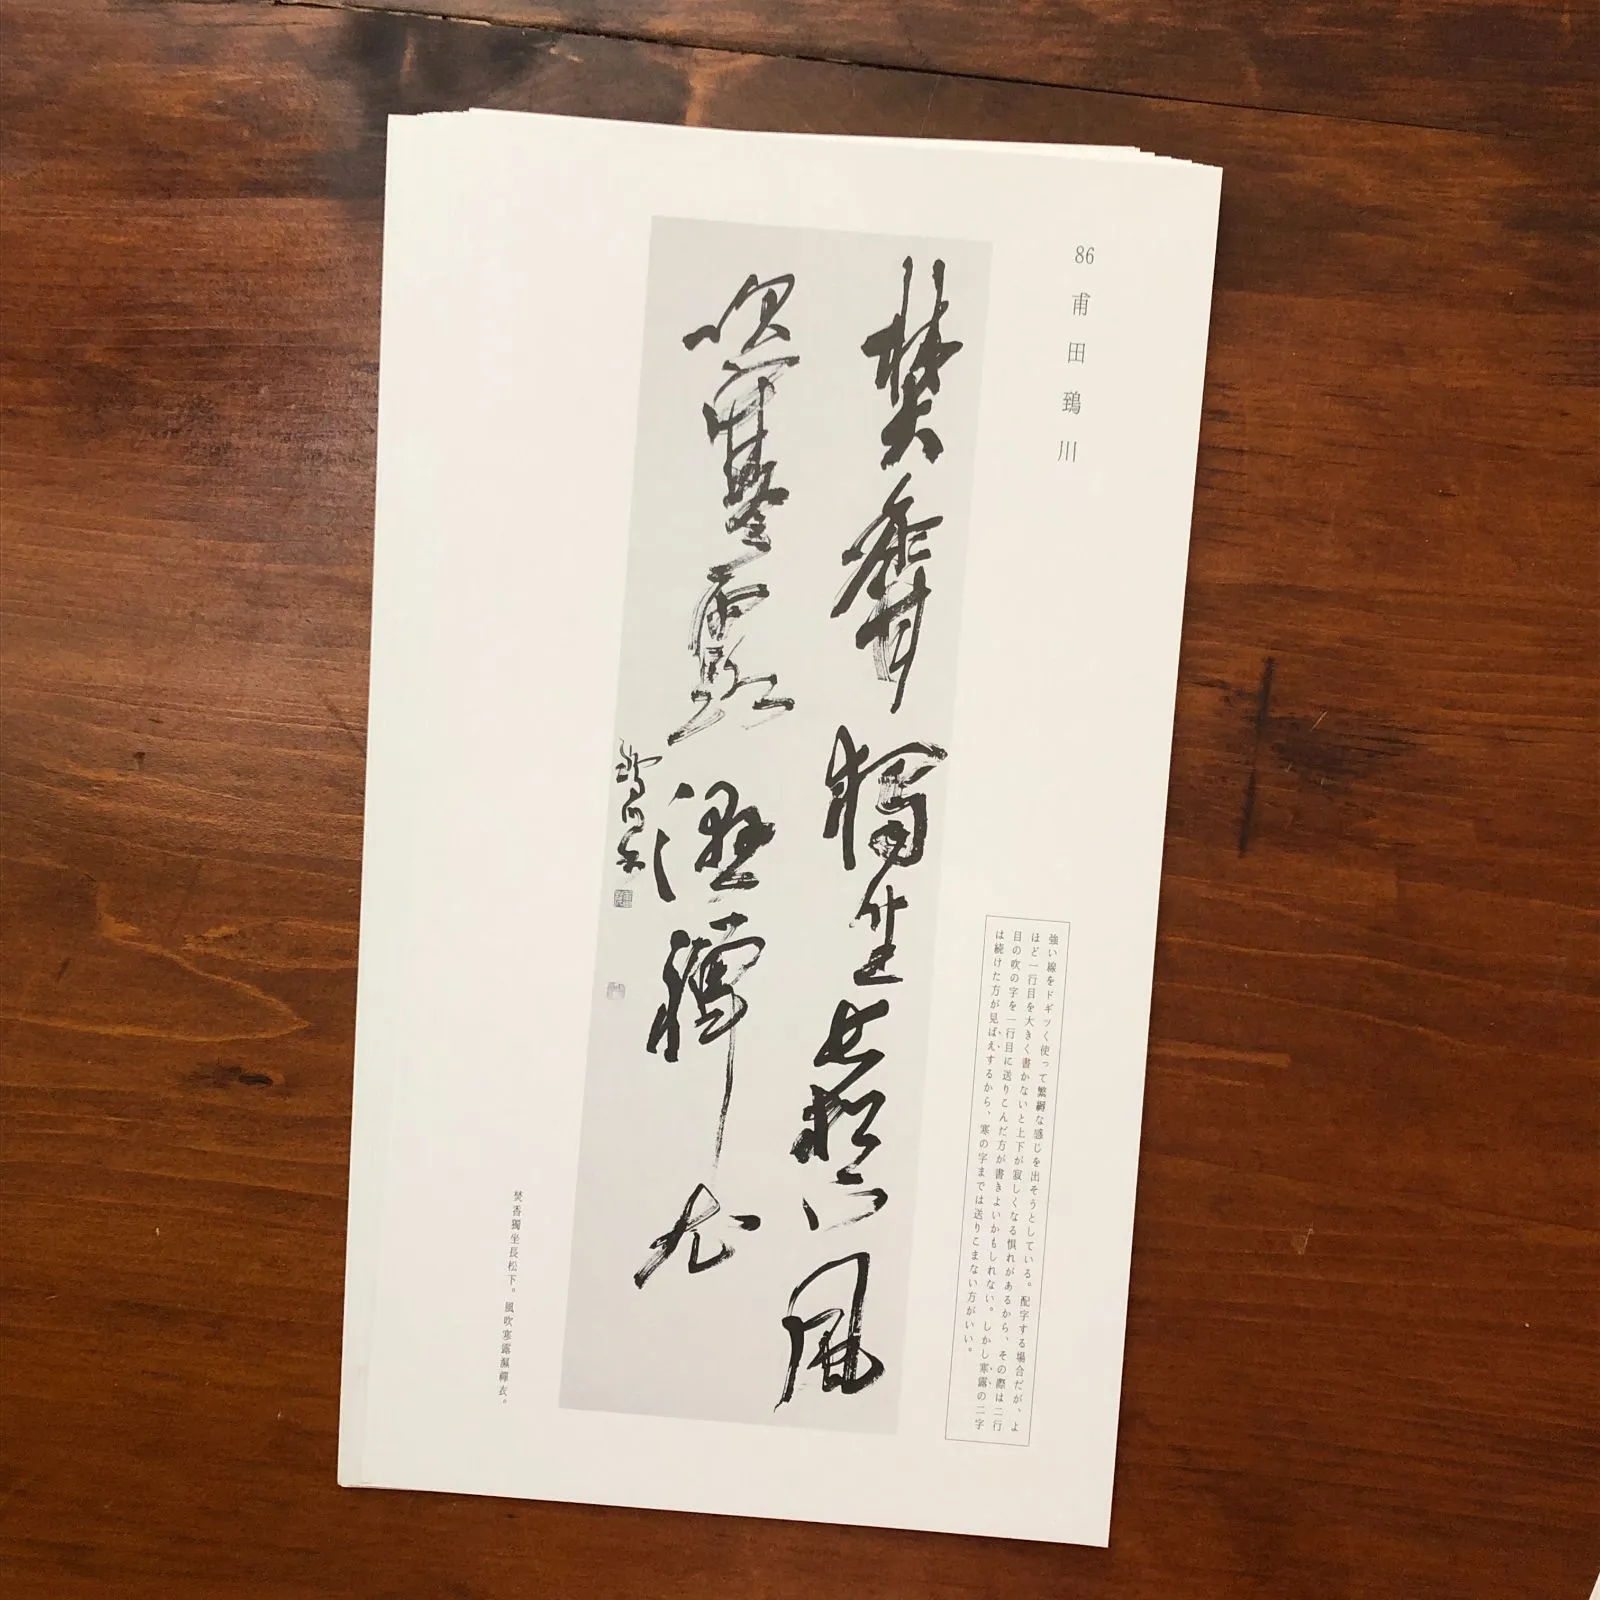 86 甫田鵄川
焚香獨坐長松下風
吹寒露濕禪衣
鵄川
強い線をドギツく使って繁褥な感じを出そうとしている。配字する場合だが、よ
ほど一行目を大きく書かないと上下が寂しくなる惧れがあるから、その際は二行
目の吹の字を一行目に送りこんだ方が書きよいかもしれない。しかし寒露の二字
は続けた方が見ばえするから、寒の字までは送りこまない方がいい。
焚香獨坐長松下。風吹寒露濕禪衣。